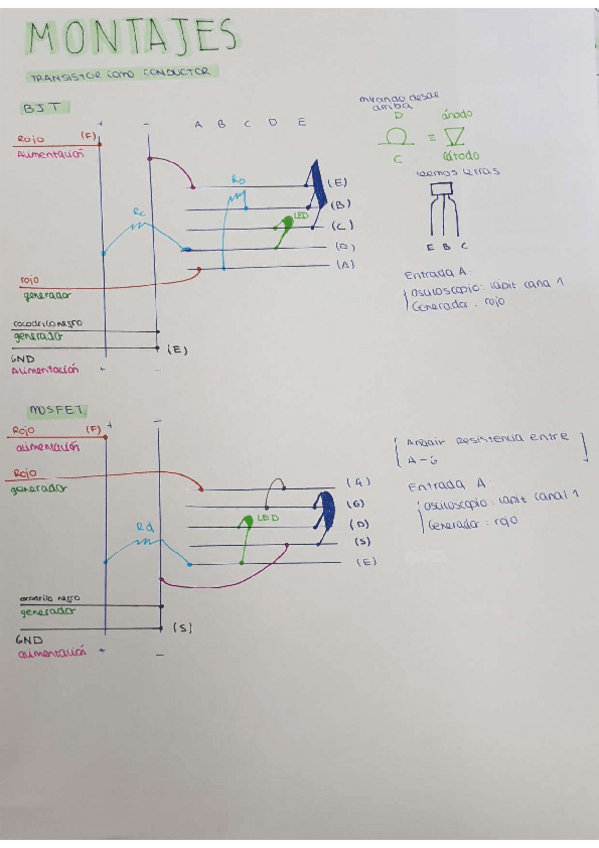 MONTAJES
TRANSISTOR COMO CONDUCTOR
BJT
+ - A B C D E
Rojo (F)
Alimentación
Rb
(E)
(B)
Rc
LED
(C)
(D)
(A)
rojo
generador
cocodrilo negro
generador
(E)
GND
Alimentación + -
mirando desde
arriba
D ánodo
=
C cátodo
leemos letras
E B C
Entrada A:
Osciloscopio: lápit cana 1
Generador: rojo
MOSFET
+ -
Rojo (F)
alimentación
Rojo
generador
(A)
(G)
LED
(D)
Rd
(S)
(E)
cocodrilo negro
generador
(S)
GND
alimentación + -
Añadir Resistencia entre
A-G
Entrada A:
osciloscopio: lápit canal 1
Generador: rojo